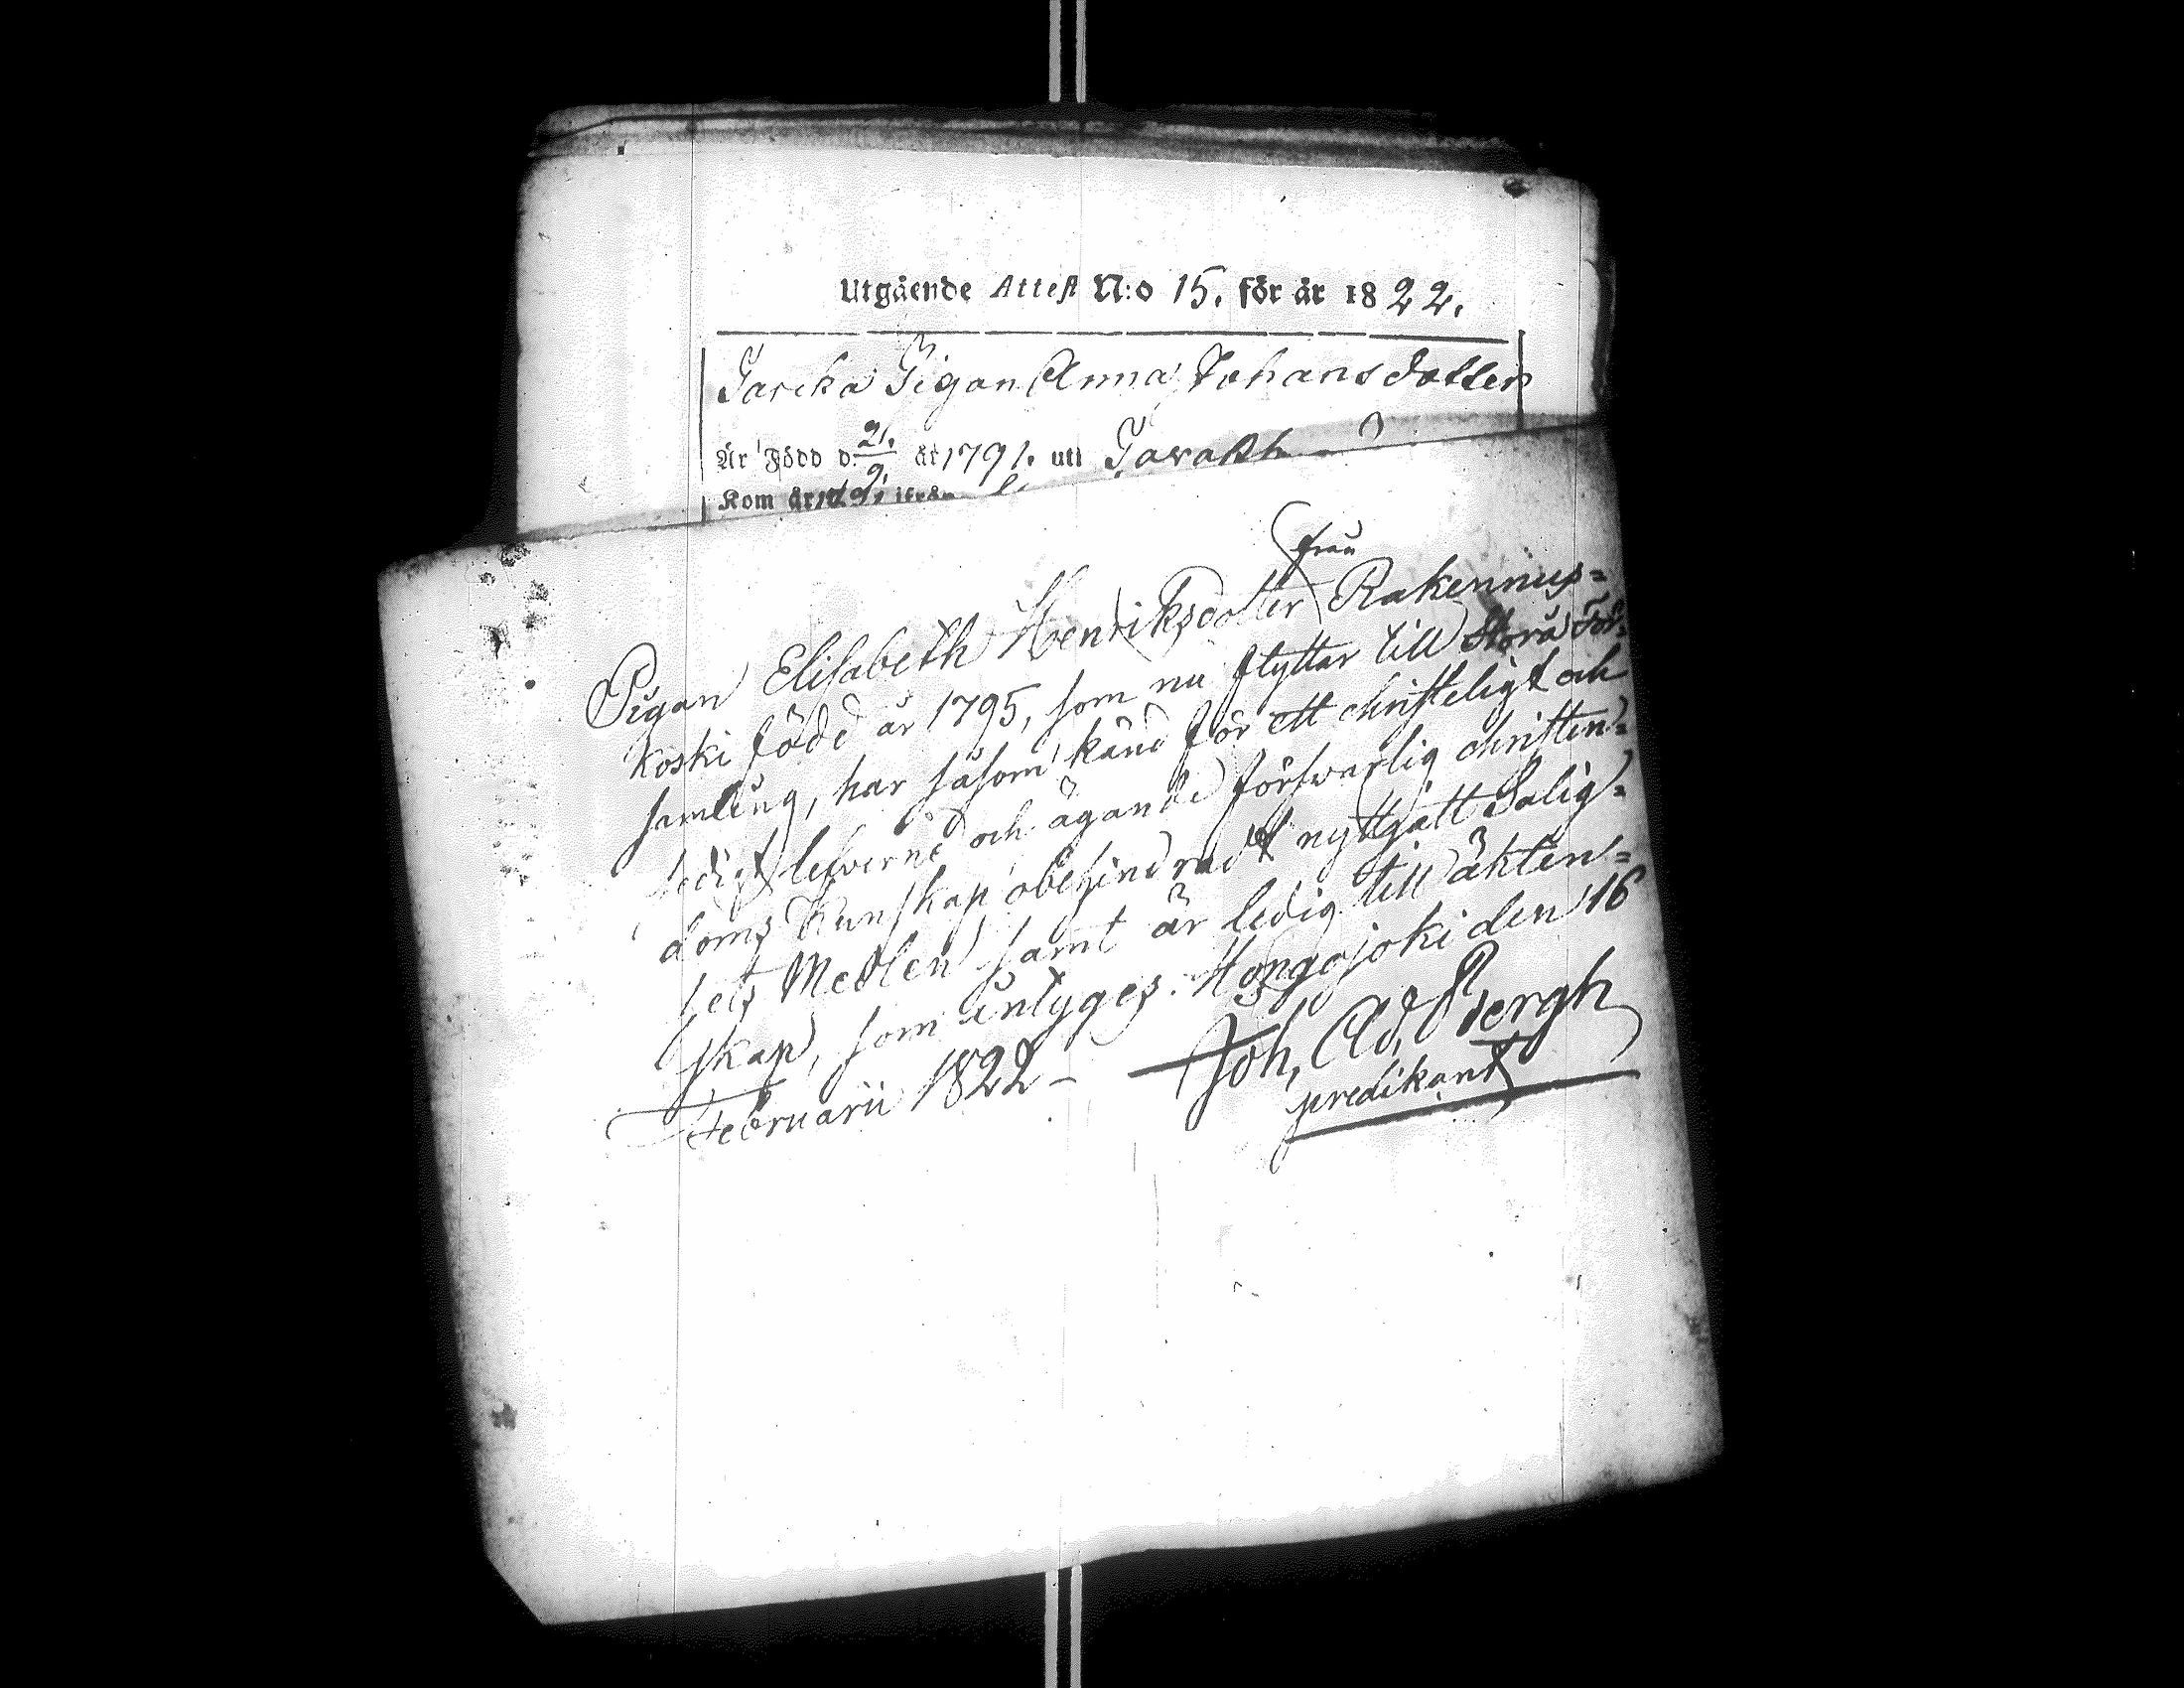 Utgående Attest N:o 15. för år 1822.
Pigan Anna Johansdotter
Är Född d. 21/9. år 1791. uti
Kom år ifrån
från
Pigan Elisabeth Henriksdotter Rakennus=
koski född år 1795, som nu flyttar till Stora För=
samling, har såsom känd för ett christeligt och
sedigt lefverne och ägande försvarlig christen=
doms Kunskap obehindradt nyttjatt Salig=
hets Medlen samt är ledig till äkten=
skap, som intyges. Hongojoki den 16
Februarii 1822 – Joh, Ad, Bergh
predikant